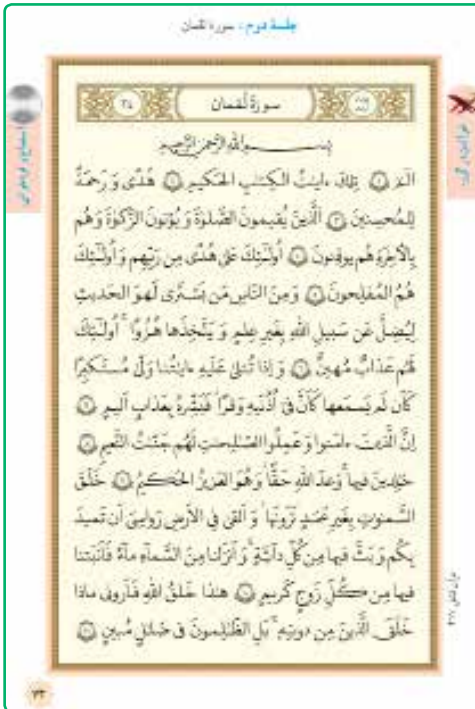 جلسهٔ دوم: سورهٔ لقمان
سورة لقمان
۳۴
بسم الله الرحمن الرحيم
الٓمٓ ۝۱ تِلكَ ءايٰتُ الكِتٰبِ الحَكيمِ ۝۲ هُدًى وَ رَحمَةً
لِلمُحسِنينَ ۝۳ اَلَّذينَ يُقيمونَ الصَّلوٰةَ وَ يُؤتونَ الزَّكوٰةَ وَ هُم
بِالأٰخِرَةِ هُم يوقِنونَ ۝۴ اُولٰٓئِكَ عَلىٰ هُدًى مِن رَبِّهِم وَ اُولٰٓئِكَ
هُمُ المُفلِحونَ ۝۵ وَ مِنَ النّاسِ مَن يَشتَرى لَهوَ الحَديثِ
لِيُضِلَّ عَن سَبيلِ اللهِ بِغَيرِ عِلمٍ وَ يَتَّخِذَها هُزُوًا ۚ اُولٰٓئِكَ
لَهُم عَذابٌ مُهينٌ ۝۶ وَ اِذا تُتلىٰ عَلَيهِ ءايٰتُنا وَلّىٰ مُستَكبِرًا
كَأَن لَم يَسمَعها كَأَنَّ فى اُذُنَيهِ وَقرًا ۖ فَبَشِّرهُ بِعَذابٍ اَليمٍ ۝۷
اِنَّ الَّذينَ ءامَنوا وَ عَمِلُوا الصّٰلِحٰتِ لَهُم جَنّٰتُ النَّعيمِ ۝۸
خٰلِدينَ فيها ۖ وَعدَ اللهِ حَقًّا ۚ وَ هُوَ العَزيزُ الحَكيمُ ۝۹ خَلَقَ
السَّمٰوٰتِ بِغَيرِ عَمَدٍ تَرَونَها ۖ وَ اَلقىٰ فِى الاَرضِ رَواسِىَ اَن تَميدَ
بِكُم وَ بَثَّ فيها مِن كُلِّ دآبَّةٍ ۚ وَ اَنزَلنا مِنَ السَّمآءِ مآءً فَاَنبَتنا
فيها مِن كُلِّ زَوجٍ كَريمٍ ۝۱۰ هٰذا خَلقُ اللهِ فَاَرونى ماذا
خَلَقَ الَّذينَ مِن دونِهِ ۚ بَلِ الظّٰلِمونَ فى ضَلٰلٍ مُبينٍ ۝۱۱